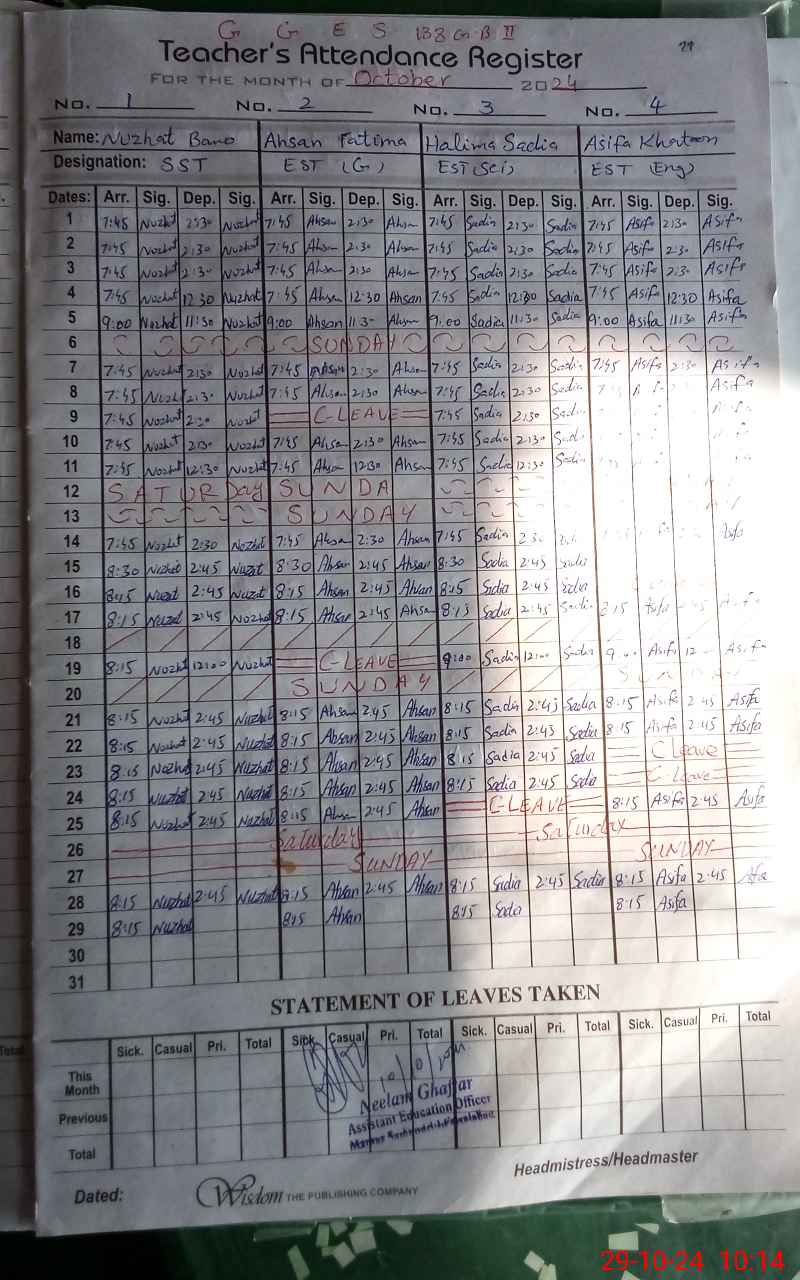 G G E S 188 G.B II
Teacher's Attendance Register
FOR THE MONTH OF October 2024
No. 1 No. 2 No. 3 No. 4
Name: Nuzhat Bano Ahsan Fatima Halima Sadia Asifa Khatoon
Designation: SST EST (G) EST (Sci) EST (Eng)
Dates: Arr. Sig. Dep. Sig. Arr. Sig. Dep. Sig. Arr. Sig. Dep. Sig. Arr. Sig. Dep. Sig.
1 7:45 Nuzhat 2:30 Nuzhat 7:45 Ahsan 2:30 Ahsan 7:45 Sadia 2:30 Sadia 7:45 Asifa 2:30 Asifa
2 7:45 Nuzhat 2:30 Nuzhat 7:45 Ahsan 2:30 Ahsan 7:45 Sadia 2:30 Sadia 7:45 Asifa 2:30 Asifa
3 7:45 Nuzhat 2:30 Nuzhat 7:45 Ahsan 2:30 Ahsan 7:45 Sadia 2:30 Sadia 7:45 Asifa 2:30 Asifa
4 7:45 Nuzhat 12:30 Nuzhat 7:45 Ahsan 12:30 Ahsan 7:45 Sadia 12:30 Sadia 7:45 Asifa 12:30 Asifa
5 9:00 Nuzhat 11:30 Nuzhat 9:00 Ahsan 11:30 Ahsan 9:00 Sadia 11:30 Sadia 9:00 Asifa 11:30 Asifa
6 SUNDAY
7 7:45 Nuzhat 2:30 Nuzhat 7:45 Ahsan 2:30 Ahsan 7:45 Sadia 2:30 Sadia 7:45 Asifa 2:30 Asifa
8 7:45 Nuzhat 2:30 Nuzhat 7:45 Ahsan 2:30 Ahsan 7:45 Sadia 2:30 Sadia Asifa
9 7:45 Nuzhat 2:30 Nuzhat C-LEAVE 7:45 Sadia 2:30 Sadia
10 7:45 Nuzhat 2:30 Nuzhat 7:45 Ahsan 2:30 Ahsan 7:45 Sadia 2:30 Sadia
11 7:45 Nuzhat 12:30 Nuzhat 7:45 Ahsan 12:30 Ahsan 7:45 Sadia 12:30 Sadia
12 SATURDay SUNDA
13 SUNDAY
14 7:45 Nuzhat 2:30 Nuzhat 7:45 Ahsan 2:30 Ahsan 7:45 Sadia 2:30 Asifa
15 8:30 Nuzhat 2:45 Nuzat 8:30 Ahsan 2:45 Ahsan 8:30 Sadia 2:45 Sadia
16 8:15 Nuzat 2:45 Nuzat 8:15 Ahsan 2:45 Ahsan 8:15 Sadia 2:45 Sadia
17 8:15 Nuzat 2:45 Nuzhat 8:15 Ahsan 2:45 Ahsan 8:15 Sadia 2:45 Sadia 8:15 Asifa
18
19 8:15 Nuzhat 12:00 Nuzhat C-LEAVE 9:00 Sadia 12:00 Sadia Asifa 12 Asifa
20 SUNDAY
21 8:15 Nuzhat 2:45 Nuzhat 8:15 Ahsan 2:45 Ahsan 8:15 Sadia 2:45 Sadia 8:15 Asifa 2:45 Asifa
22 8:15 Nuzhat 2:45 Nuzhat 8:15 Ahsan 2:45 Ahsan 8:15 Sadia 2:45 Sadia 8:15 Asifa 2:45 Asifa
23 8:15 Nuzhat 2:45 Nuzhat 8:15 Ahsan 2:45 Ahsan 8:15 Sadia 2:45 Sadia C Leave
24 8:15 Nuzhat 2:45 Nuzhat 8:15 Ahsan 2:45 Ahsan 8:15 Sadia 2:45 Sadia C-Leave
25 8:15 Nuzhat 2:45 Nuzhat 8:15 Ahsan 2:45 Ahsan C-LEAVE 8:15 Asifa 2:45 Asifa
26 Saturday Saturday
27 SUNDAY SUNDAY
28 8:15 Nuzhat 2:45 Nuzhat 8:15 Ahsan 2:45 Ahsan 8:15 Sadia 2:45 Sadia 8:15 Asifa 2:45
29 8:15 Nuzhat 8:15 Ahsan 8:15 Sadia 8:15 Asifa
30
31
STATEMENT OF LEAVES TAKEN
Sick. Casual Pri. Total Sick. Casual Pri. Total Sick. Casual Pri. Total Sick. Casual Pri. Total
This Month
Previous
Total
Neelam Ghaffar
Assistant Education Officer
Headmistress/Headmaster
Dated: Wisdom THE PUBLISHING COMPANY
29-10-24 10:14